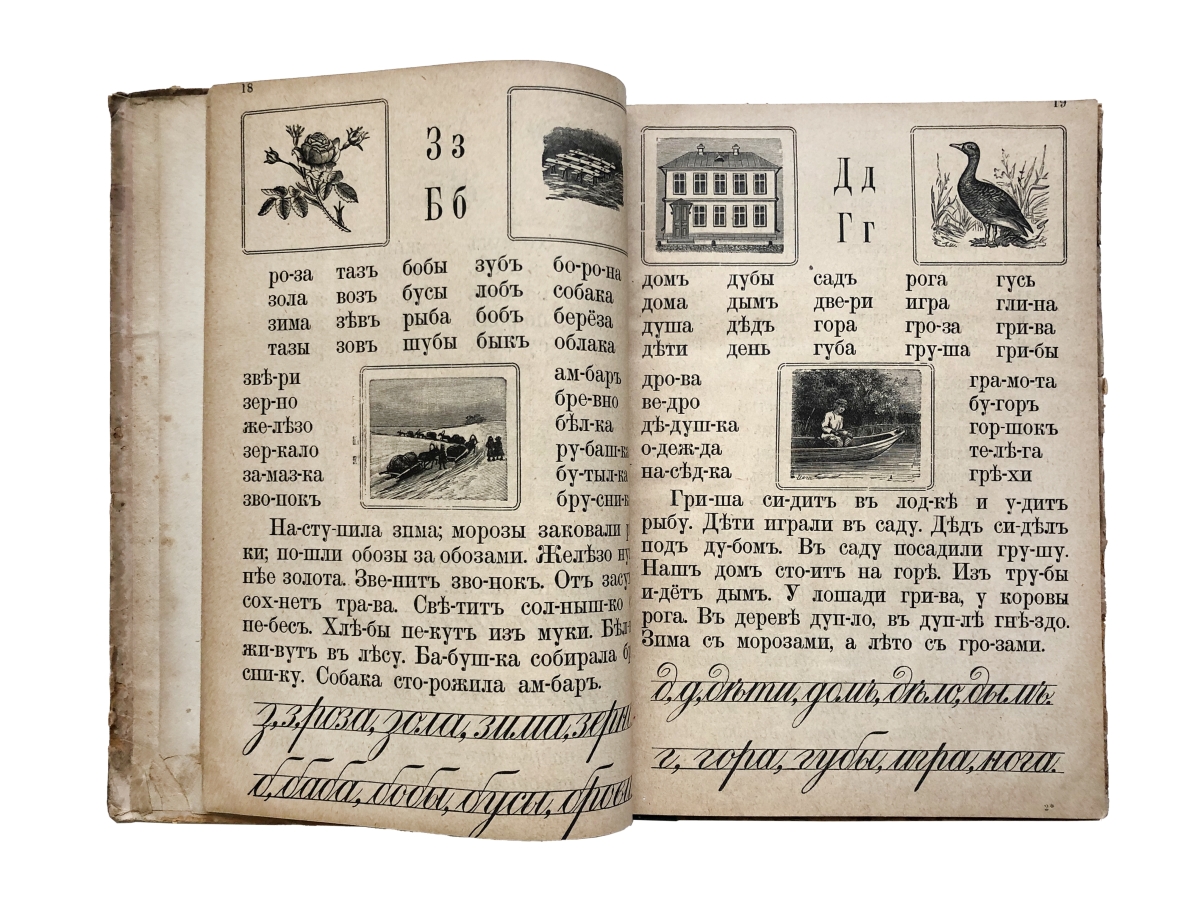 18
З з
Б б
ро-за тазъ бобы зубъ бо-ро-на
зола возъ бусы лобъ собака
зима зѣвъ рыба бобъ берёза
тазы зовъ шубы быкъ облака
звѣ-ри ам-баръ
зер-но бре-вно
же-лѣзо бѣл-ка
зер-кало ру-баш-ка
за-маз-ка бу-тыл-ка
зво-нокъ бру-сни-к
На-сту-пила зима; морозы заковали р
ки; по-шли обозы за обозами. Желѣзо ну
нѣе золота. Зве-нитъ зво-нокъ. Отъ засу
сох-нетъ тра-ва. Свѣ-титъ сол-ныш-ко
не-бесъ. Хлѣ-бы пе-кутъ изъ муки. Бѣл-
жи-вутъ въ лѣсу. Ба-буш-ка собирала бр
сни-ку. Собака сто-рожила ам-баръ.
з, з, роза, зола, зима, зерн
б, баба, бобы, бусы, бровь
19
Д д
Г г
домъ дубы садъ рога гусь
дома дымъ две-ри игра гли-на
душа дѣдъ гора гро-за гри-ва
дѣти день губа гру-ша гри-бы
дро-ва гра-мо-та
ве-дро бу-горъ
дѣ-душ-ка гор-шокъ
о-деж-да те-лѣ-га
на-сѣд-ка грѣ-хи
Гри-ша си-дитъ въ лод-кѣ и у-дитъ
рыбу. Дѣти играли въ саду. Дѣдъ си-дѣлъ
подъ ду-бомъ. Въ саду посадили гру-шу.
Нашъ домъ сто-итъ на горѣ. Изъ тру-бы
и-дётъ дымъ. У лошади гри-ва, у коровы
рога. Въ деревѣ дуп-ло, въ дуп-лѣ гнѣ-здо.
Зима съ морозами, а лѣто съ гро-зами.
д, д, дѣти, домъ, дѣло, дымъ.
г, гора, губы, игра, нога.
2*